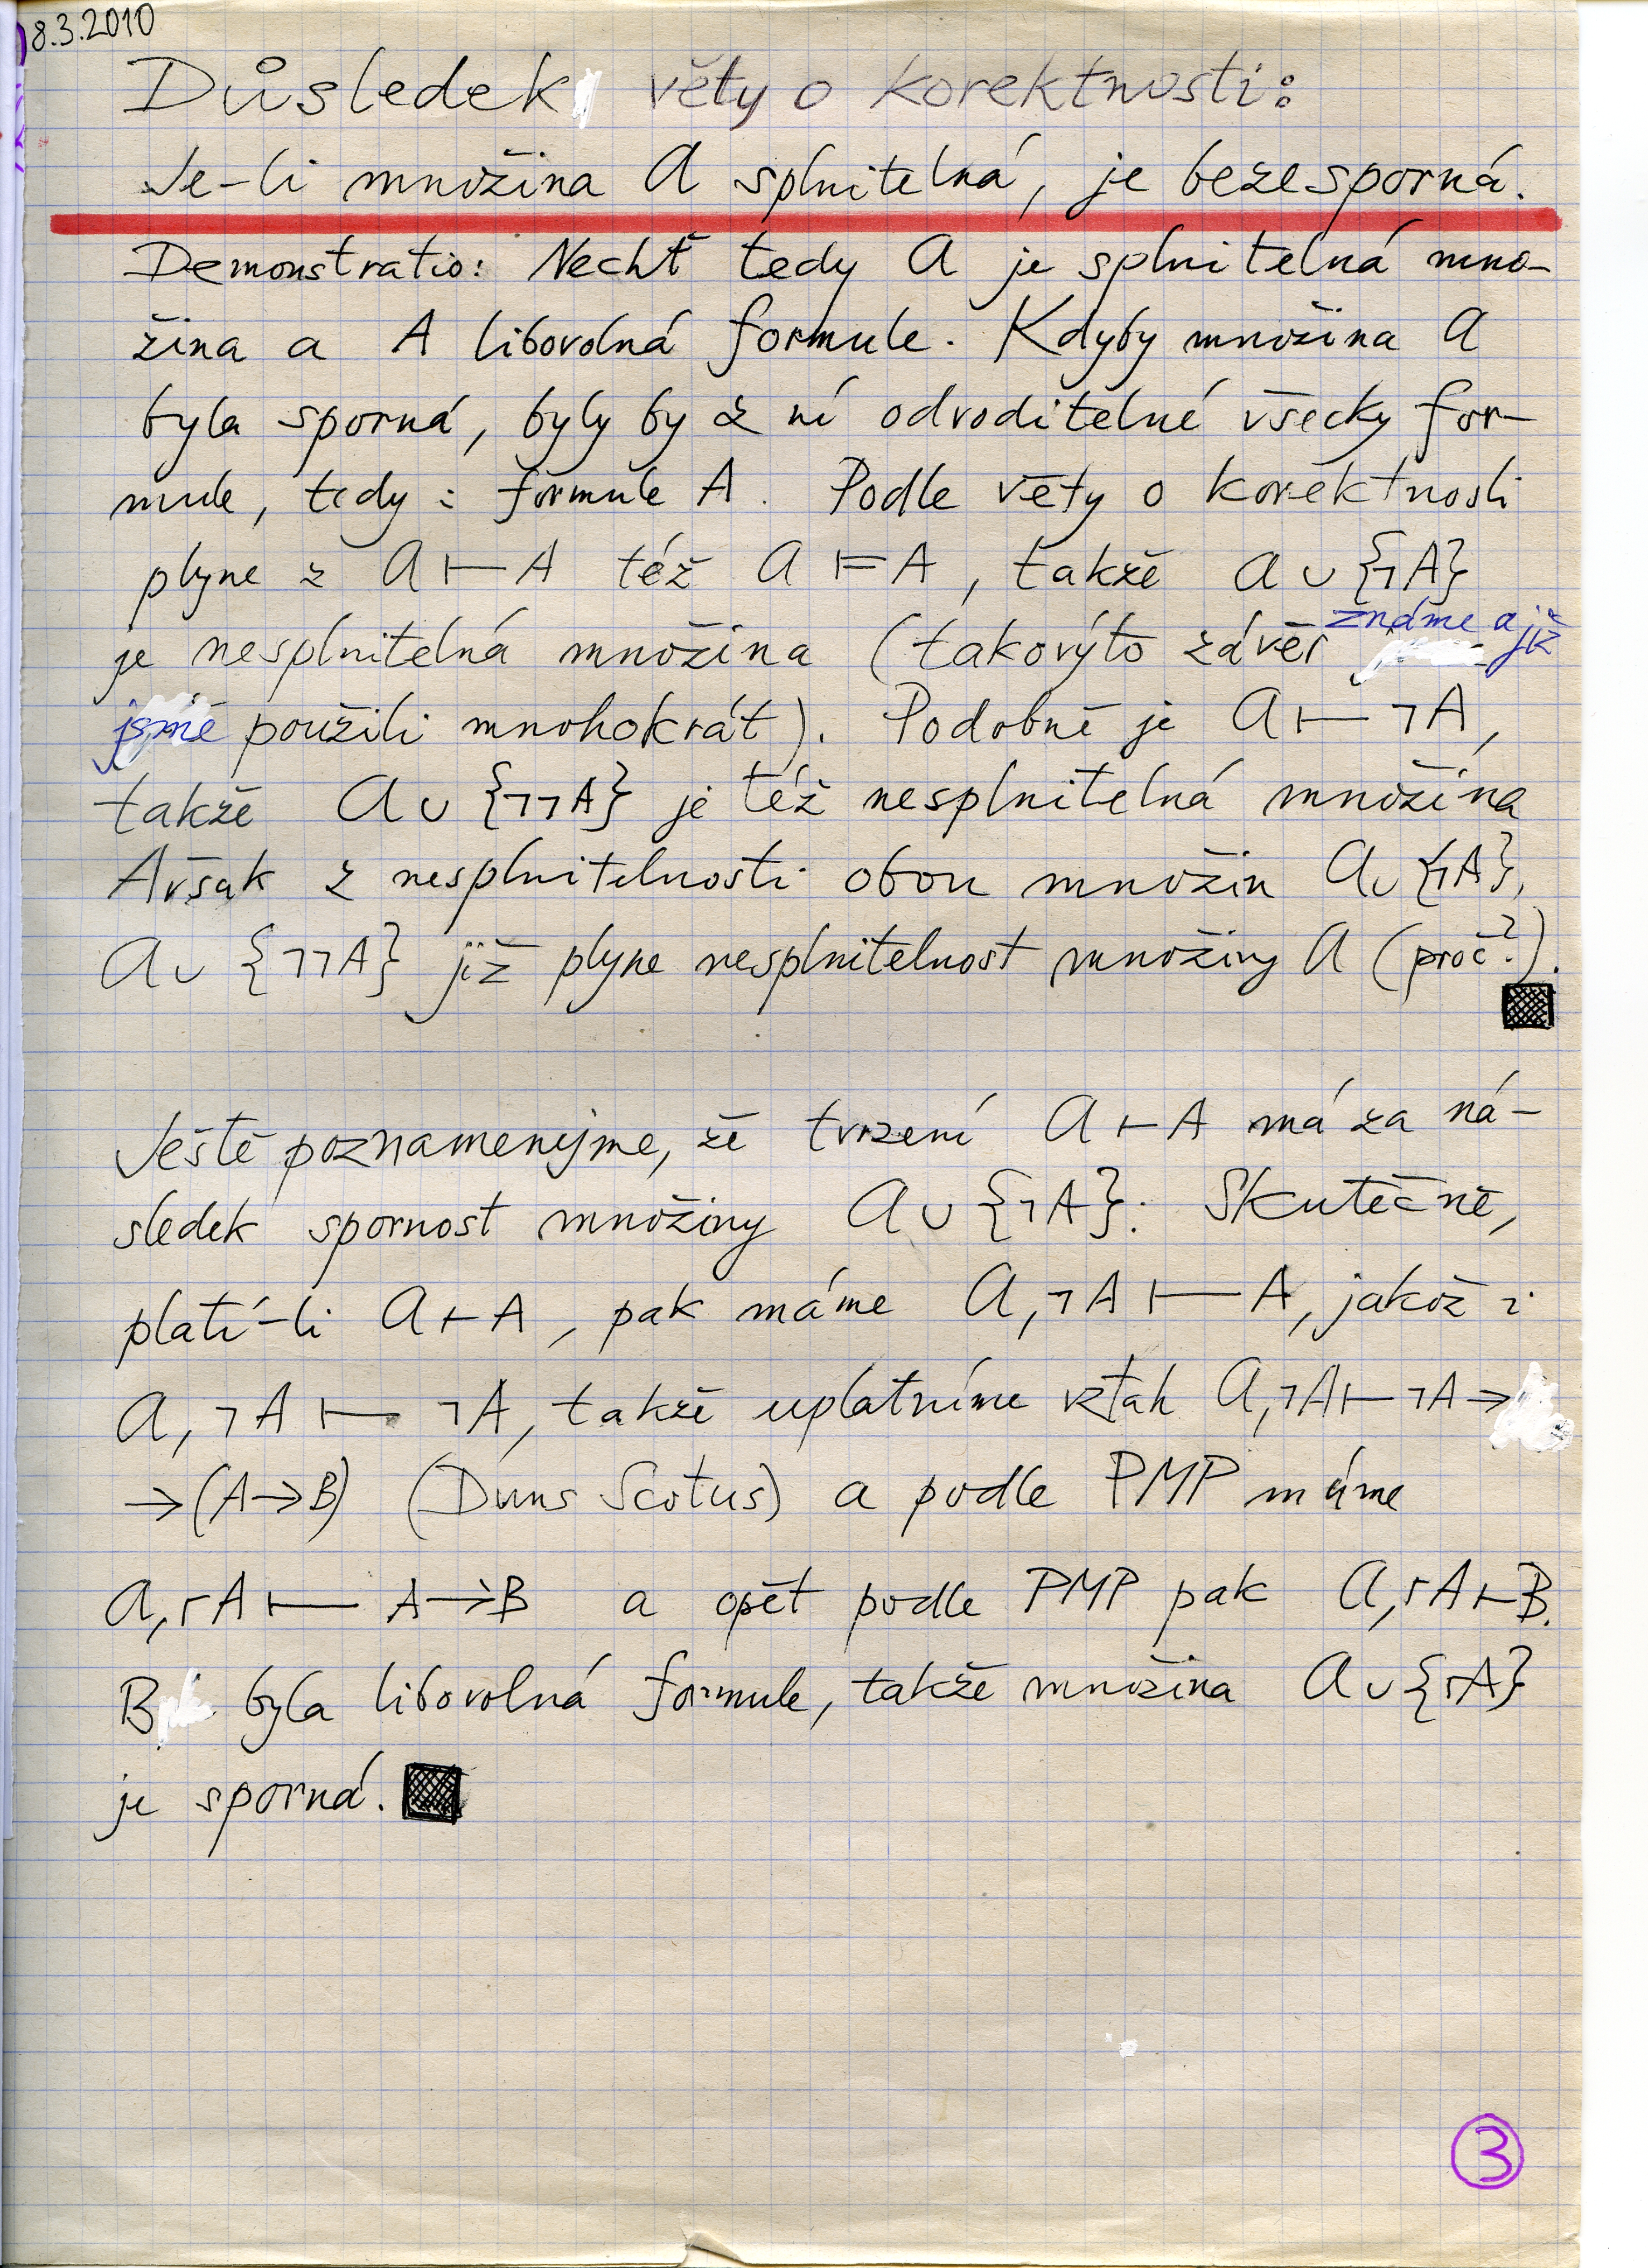 8.3.2010
Důsledek věty o korektnosti:
Je-li množina 𝒜 splnitelná, je bezesporná.
Demonstratio: Nechť tedy 𝒜 je splnitelná mno-
žina a A libovolná formule. Kdyby množina 𝒜
byla sporná, byly by z ní odvoditelné všecky for-
mule, tedy i formule A. Podle věty o korektnosti
plyne z 𝒜 ⊢ A též 𝒜 ⊨ A, takže 𝒜 ∪ {¬A}
je nesplnitelná množina (takovýto závěr známe a již
jsme použili mnohokrát). Podobně je 𝒜 ⊢ ¬A,
takže 𝒜 ∪ {¬¬A} je též nesplnitelná množina
Avšak z nesplnitelnosti obou množin 𝒜 ∪ {¬A},
𝒜 ∪ {¬¬A} již plyne nesplnitelnost množiny 𝒜 (proč?).
Ještě poznamenejme, že tvrzení 𝒜 ⊢ A má za ná-
sledek spornost množiny 𝒜 ∪ {¬A}: Skutečně,
platí-li 𝒜 ⊢ A, pak máme 𝒜, ¬A ⊢ A, jakož i
𝒜, ¬A ⊢ ¬A, takže uplatníme vztah 𝒜, ¬A ⊢ ¬A →
→ (A → B) (Duns Scotus) a podle PMP máme
𝒜, ¬A ⊢ A → B a opět podle PMP pak 𝒜, ¬A ⊢ B.
B byla libovolná formule, takže množina 𝒜 ∪ {¬A}
je sporná.
3